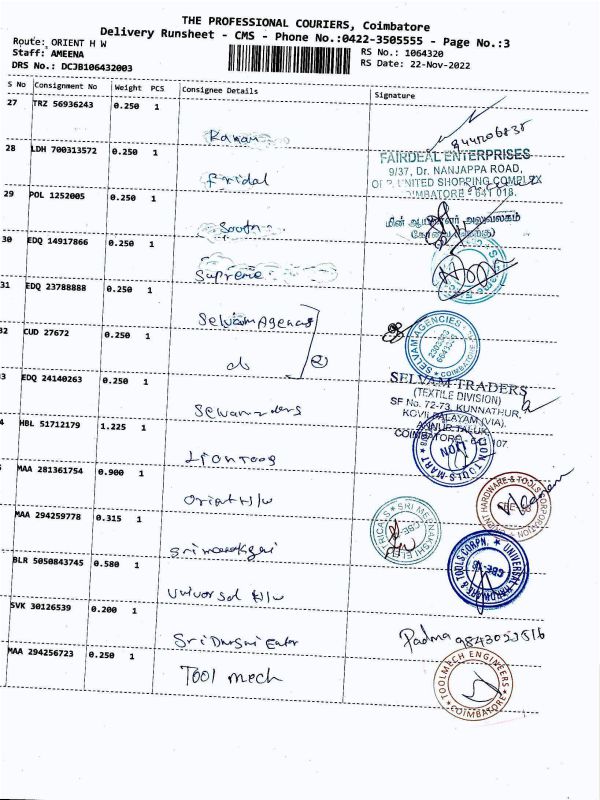 THE PROFESSIONAL COURIERS, Coimbatore
Delivery Runsheet - CMS - Phone No.:0422-3505555 - Page No.:3
Route: ORIENT H W
Staff: AMEENA
DRS No.: DCJB106432003
RS No.: 1064320
RS Date: 22-Nov-2022
S No Consignment No Weight PCS Consignee Details Signature
27 TRZ 56936243 0.250 1
28 LDH 700313572 0.250 1
FAIRDEAL ENTERPRISES
9/37, Dr. NANJAPPA ROAD,
UNITED SHOPPING COMPLEX
COIMBATORE - 641 018.
29 POL 1252005 0.250 1 South
மின் அலுவலகம்
30 EDQ 14917866 0.250 1 Supreme
31 EDQ 23788888 0.250 1 Selvam Agencies
SELVAM AGENCIES
COIMBATORE
32 CUD 27672 0.250 1 do 2
33 EDQ 24140263 0.250 1 Selvam
SELVAM TRADERS
(TEXTILE DIVISION)
SF No. 72-73, KUNNATHUR,
KOVILPALAYAM (VIA),
ANNUR TALUK,
COIMBATORE - 641 107.
4 HBL 51712179 1.225 1 Lion Tools
LION TOOLS MART
LION
5 MAA 281361754 0.900 1 Orient H/W
ORIENT HARDWARE & TOOLS CORPORATION
MAA 294259778 0.315 1
SRI MEENAKSHI ELECTRICALS
CBE
BLR 5050843745 0.580 1 Universal H/W
UNIVERSAL HARDWARE & TOOLS CORPN.
CBE-18
SVK 30126539 0.200 1
Padma
MAA 294256723 0.250 1 Tool mech
TOOLMECH ENGINEERS
COIMBATORE